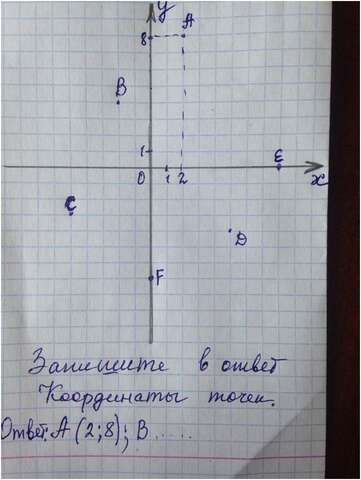 y
8 A
B
1
E
0 1 2 x
C
D
F
Запишите в ответ
Координаты точек.
Ответ: A (2; 8); B .....